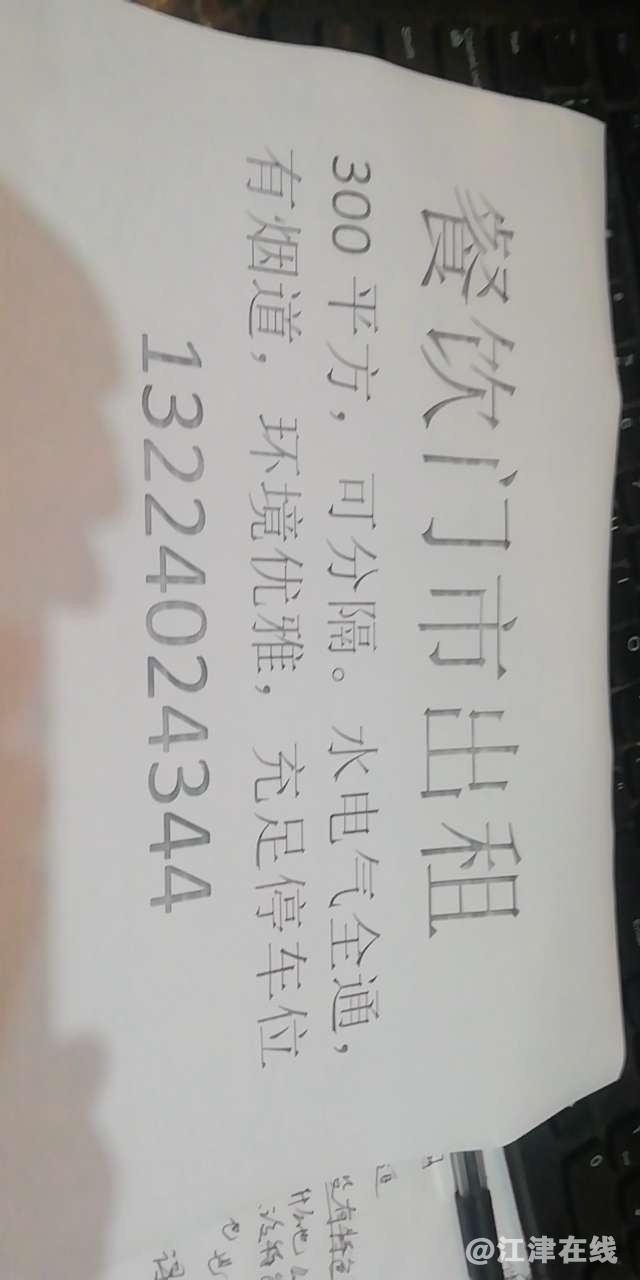 餐饮门市出租
300平方，可分隔。水电气全通，
有烟道，环境优雅，充足停车位
13224024344
@江津在线